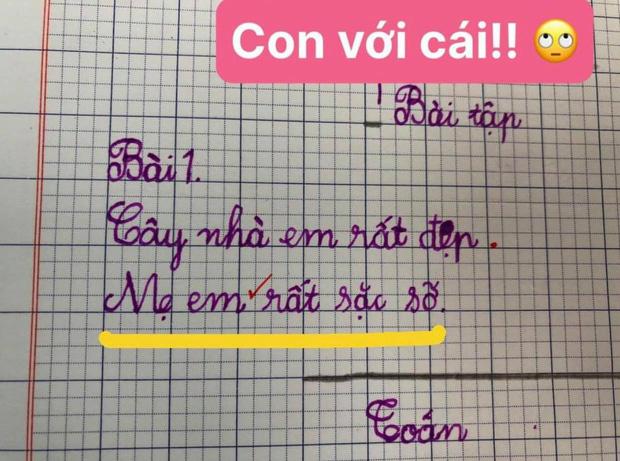 Con với cái!! 🙄
Bài tập
Bài 1.
Cây nhà em rất đẹp.
Mẹ em rất sặc sỡ.
Toán